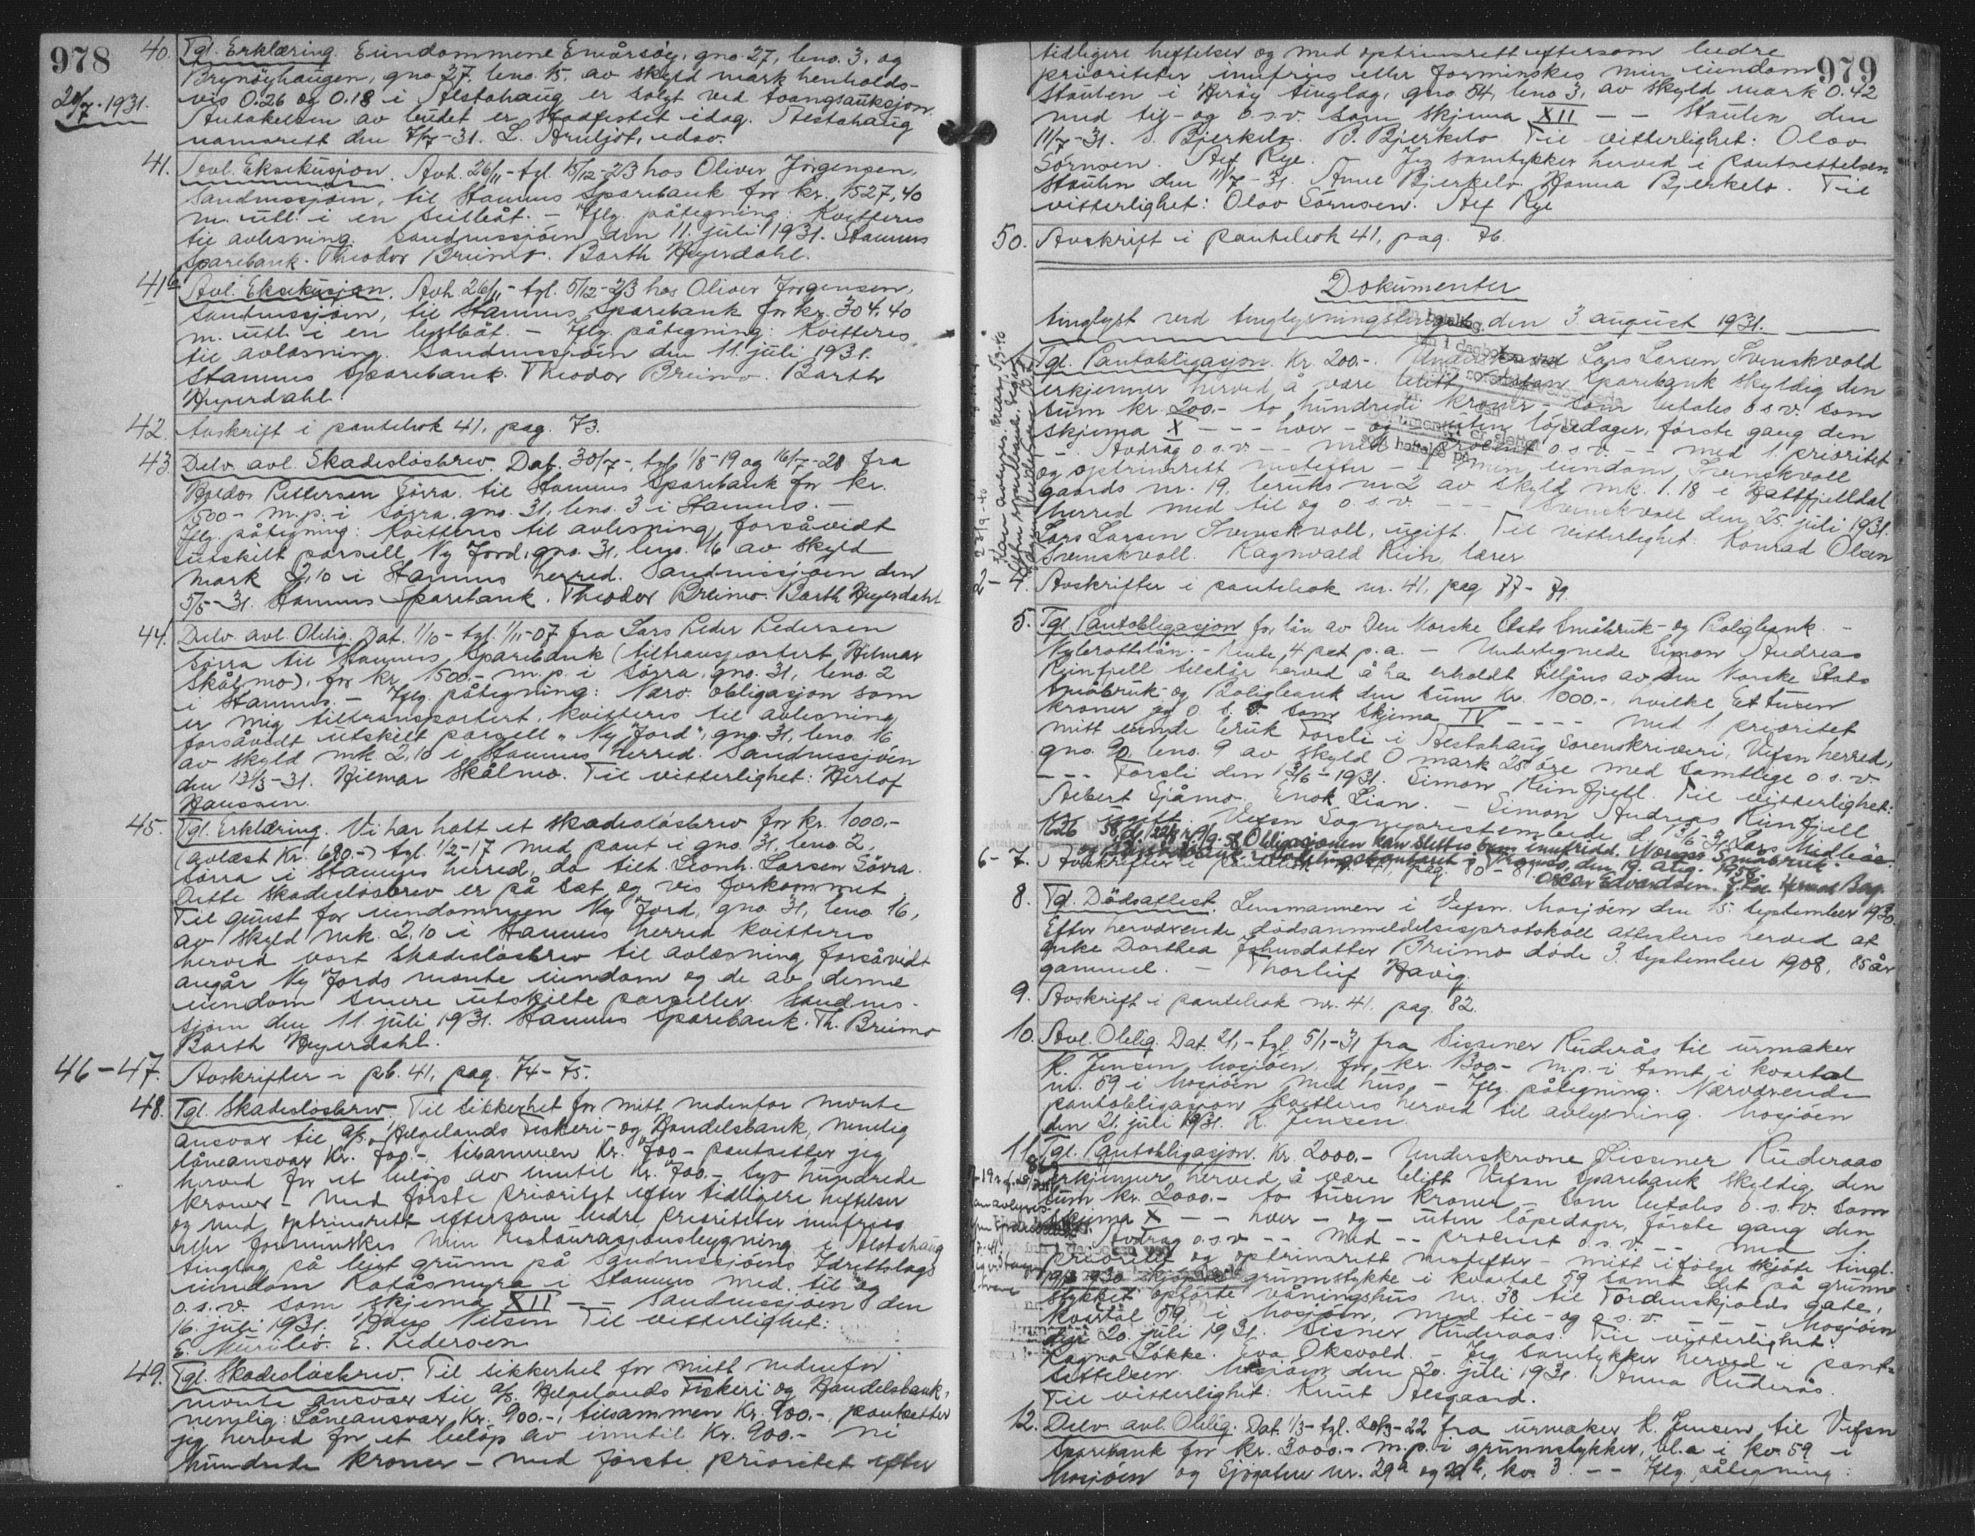 978
20/7-1931.
40. Tgl. Erklæring. Eiendommene Envårsøy, gno. 27, bno. 3, og
Brynöyhaugen, gno 27, bno. 15, av skyld mark henholds-
vis 0.26 og 0.18 i Alstahaug er solgt ved tvangsauksjon.
Antakelsen av budet er stadfestet idag. Alstahaug
namsrett den 7/7-31. L.
41. Avl. Eksekusjon. Avh. 26/11- tgl. 5/12-23 hos Oliver Jörgensen,
Sandnessjöen, til Stamnes Sparebank for kr. 1527,40
m. utl. i en seilbåt. - Iflg. påtegning: Kvitteres
til avlesning. Sandnessjöen den 11. juli 1931. Stamnes
Sparebank. Theodor Breimo. Barth Heyerdahl.
41b Avl. Eksekusjon. Avh. 26/11- tgl. 5/12-23 hos Oliver Jörgensen,
Sandnessjöen, til Stamnes Sparebank for kr. 304,40
m. utl. i en lystbåt. - Iflg. påtegning: Kvitteres
til avlesning. Sandnessjöen den 11. juli 1931.
Stamnes Sparebank. Theodor Breimo. Barth
Heyerdahl.
42. Avskrift i pantebok 41, pag. 73.
43. Delv. avl. Skadeslösbrev. Dat. 30/7- tgl. 1/8-19 og 16/7-28 fra
Pedersen Sörra til Stamnes Sparebank for kr.
1500- m.p. i Sörra, gno. 31, bno. 3 i Stamnes. -
Iflg. påtegning: Kvitteres til avlesning forsåvidt
utskilt parsell, Ny Jord, gno. 31, bno. 16 av skyld
mark 2,10 i Stamnes herred. Sandnessjöen den
5/5-31. Stamnes Sparebank. Theodor Breimo. Barth Heyerdahl
44. Delv. avl. Oblig. Dat. 1/10- tgl. 1/11-07 fra Lars Peder Pedersen
Sörra til Stamnes Sparebank (tiltransportert Hilmar
Skålmo), for kr. 1500.- m.p. i Sörra, gno. 31, bno. 2
i Stamnes. - Iflg. påtegning: Nærv. obligasjon som
er mig tiltransportert, kvitteres til avlesning
forsåvidt utskilt parsell "Ny Jord", gno. 31, bno. 16
av skyld mk. 2,10 i Stamnes herred. Sandnessjöen
den 13/3-31. Hilmar Skålmo. Til vitterlighet: Herlof
Hanssen.
45. Tgl. Erklæring. Vi har hatt et skadeslösbrev for kr. 1000.-
(avlæst Kr. 690.-) tgl. 1/2-17 med pant i gno. 31, bno 2,
Sörra i Stamnes herred, da tilh. Leonh. Larsen Sörra.
Dette skadeslösbrev er på sæt og vis forkommet.
Til gunst for eiendommen Ny Jord, gno. 31, bno 16,
av skyld mk. 2,10 i Stamnes herred kvitteres
herved vort skadeslösbrev til avlæsning forsåvidt
angår Ny Jords nævnte eiendom og de av denne
eiendom senere utskilte parseller. Sandnes-
sjöen den 11. juli 1931. Stamnes Sparebank. Th. Breimo
Barth Heyerdahl.
46-47. Avskrifter i pb. 41, pag. 74-75.
48. Tgl. Skadeslösbrev. Til sikkerhet for mitt nedenfor nevnte
ansvar til A/S. Helgelands Fiskeri- og Handelsbank, nemlig
låneansvar Kr. 700.-, tilsammen Kr. 700- pantsetter jeg
herved for et belöp av inntil kr. 700.- syv hundrede
kroner - med förste prioritet efter tidligere heftelser
og med optrinsrett eftersom bedre prioriteter innfries
eller forminskes min restaurasjonsbygning i Alstahaug
tinglag på leiet grunn på Sandnessjöens Idrettslags
eiendom Ratåsmyra i Stamnes med til og
o.s.v. som skjema XII - - Sandnessjöen den
16. juli 1931. Nilsen Til vitterlighet:
E. E. Pedersen
49. Tgl. Skadeslösbrev. Til sikkerhet for mitt nedenfor
nevnte ansvar til A/S. Helgelands Fiskeri og Handelsbank,
nemlig: Låneansvar Kr. 900.-, tilsammen Kr. 900.-, pantsetter
jeg herved for et belöp av inntil Kr. 900.- ni
hundrede kroner - med förste prioritet efter
979
tidligere heftelser og med optrinsrett eftersom bedre
prioriteter innfries eller forminskes min eiendom
Stauten i Heröy tinglag, gno 54, bno 3, av skyld mark 0.42
med til- og o s.v. som skjema XII - - Stauten den
11/7-31. S. Bjerkelo. P. Bjerkelo Til vitterlighet: Olav
Sörnsen. Alf Rye. - Jeg samtykker herved i pantsettelsen
Stauten den 11/7-31. Anne Bjerkelo. Hanna Bjerkelo. Til
vitterlighet: Olav Sörnsen. Alf Rye
50. Avskrift i pantebok 41, pag. 76.
Dokumenter
tinglyst ved tinglysningsdagen den 3. august 1931.
Tgl. Pantobligasjon. Kr. 200.- Lars Larsen Svenskvold
erkjenner herved å være blitt Sparebank skyldig den
sum kr. 200.- to hundrede kroner - som betales o s.v. som
skjema X - - - hver - og - uten löpedager, förste gang den
- - Avdrag o.s.v - - med - procent o.s.v. - - med 1. prioritet
og optrinsrett nestefter - i min eiendom Svenskvoll
gaards nr. 19, bruks nr 2 av skyld mk. 1.18 i Hattfjelldal
herred med til og o s.v. - - - Svenskvoll den 25. juli 1931.
Lars Larsen Svenskvoll, ugift. Til vitterlighet. Konrad Olsen
Svenskvoll. Ragnvald lærer
2- 4. Avskrifter i pantebok nr. 41, pag 77-79.
5. Tgl. Pantobligasjon for lån av Den Norske Stats Småbruk- og Boligbank. -
Nybrottslån. - Rente 4 pct p.a. - Undertegnede Simon Andreas
Reinfjell tilstår herved å ha erholdt tillåns av Den Norske Stats
Småbruk- og Boligbank den sum kr. 1000.-, hvilke Et tusen
kroner jeg o. s. v. som skjema IV - - - - med 1 prioritet
mitt eiende bruk Forsli i Alstahaug Sorenskriveri, Vefsn herred,
gno. 90, bno. 9 av skyld 0 mark 25 öre med samtlige o.s.v.
- - - Forsli den 13/6-1931. Simon Reinfjell. Til vitterlighet:
Albert Sjåmo. Enok Lian. - Simon Andreas Reinfjell
er ugift. Vefsn Sogneprestembede d. 13/6-31. Lars Midböe.
1626 58, Obligasjonen kan slettes som innfridd. Norges Småbruk-
og Boligbank, avdelingskontoret i Tromsö, den 19. aug. 1958.
Oscar Edvardsen. Herm. Berg.
6-7. Avskrifter i pantebok nr. 41, pag. 80-81.
8. Tgl. Dödsattest. Lensmannen i Vefsn. Mosjöen den 15. september 1930.
Efter herværende dödsanmeldelsesprotokoll attesteres herved at
enke Dorthea Johnsdatter Breimo döde 3. September 1908, 85 år
gammel. - Thorleif Havig.
9. Avskrift i pantebok nr. 41. pag. 82.
10. Avl. Oblig. Dat. 2/1- tgl. 5/1-31 fra Sissener Ruderås til urmaker
R. Jensen, Mosjöen, for kr. 1300.- m.p. i tomt i kvartal
nr. 59 i Mosjöen med hus. - Iflg. påtegning. Nærværende
pantobligasjon kvitteres herved til avlysning. Mosjöen
den 21. juli 1931. R. Jensen
11. Tgl. Pantobligasjon. Kr. 2000.- Underskrevne Sissener Ruderaas
erkjenner herved å være blitt Vefsn Sparebank skyldig den
sum kr. 2000.- to tusen kroner - som betales o.s.v. som
skjema X - - hver - og - uten löpedager, förste gang den
Avdrag o.s.v - - med -- procent o.s.v. - - med
prioritet og optrinsrett nestefter - mitt ifölge skjöte tingl.
1930 grunnstykke i kvartal 59 samt det på grunn-
stykket opförte våningshus nr. 38 til Tordenskjolds gate,
kvartal 59, i Mosjöen, med til- og o.s.v. - - Mosjöen
den 20. juli 1931. Sisner Ruderaas. Til vitterlighet:
Ragna Lökke. Eva Oksvold. - Jeg samtykker herved i pant-
settelsen. Mosjöen den 20. juli 1931. Anna Ruderås.
Til vitterlighet: Knut Alsgaard.
12. Delv. avl. Oblig. Dat. 1/3- tgl. 20/3-22 fra urmaker R. Jensen til Vefsn
Sparebank for kr. 3000.- m.p. i grunnstykker, bl.a i kv. 59 i
Mosjöen og Sjögaten nr. 29a og 29b, kv. 3. - - Iflg. påtegning: